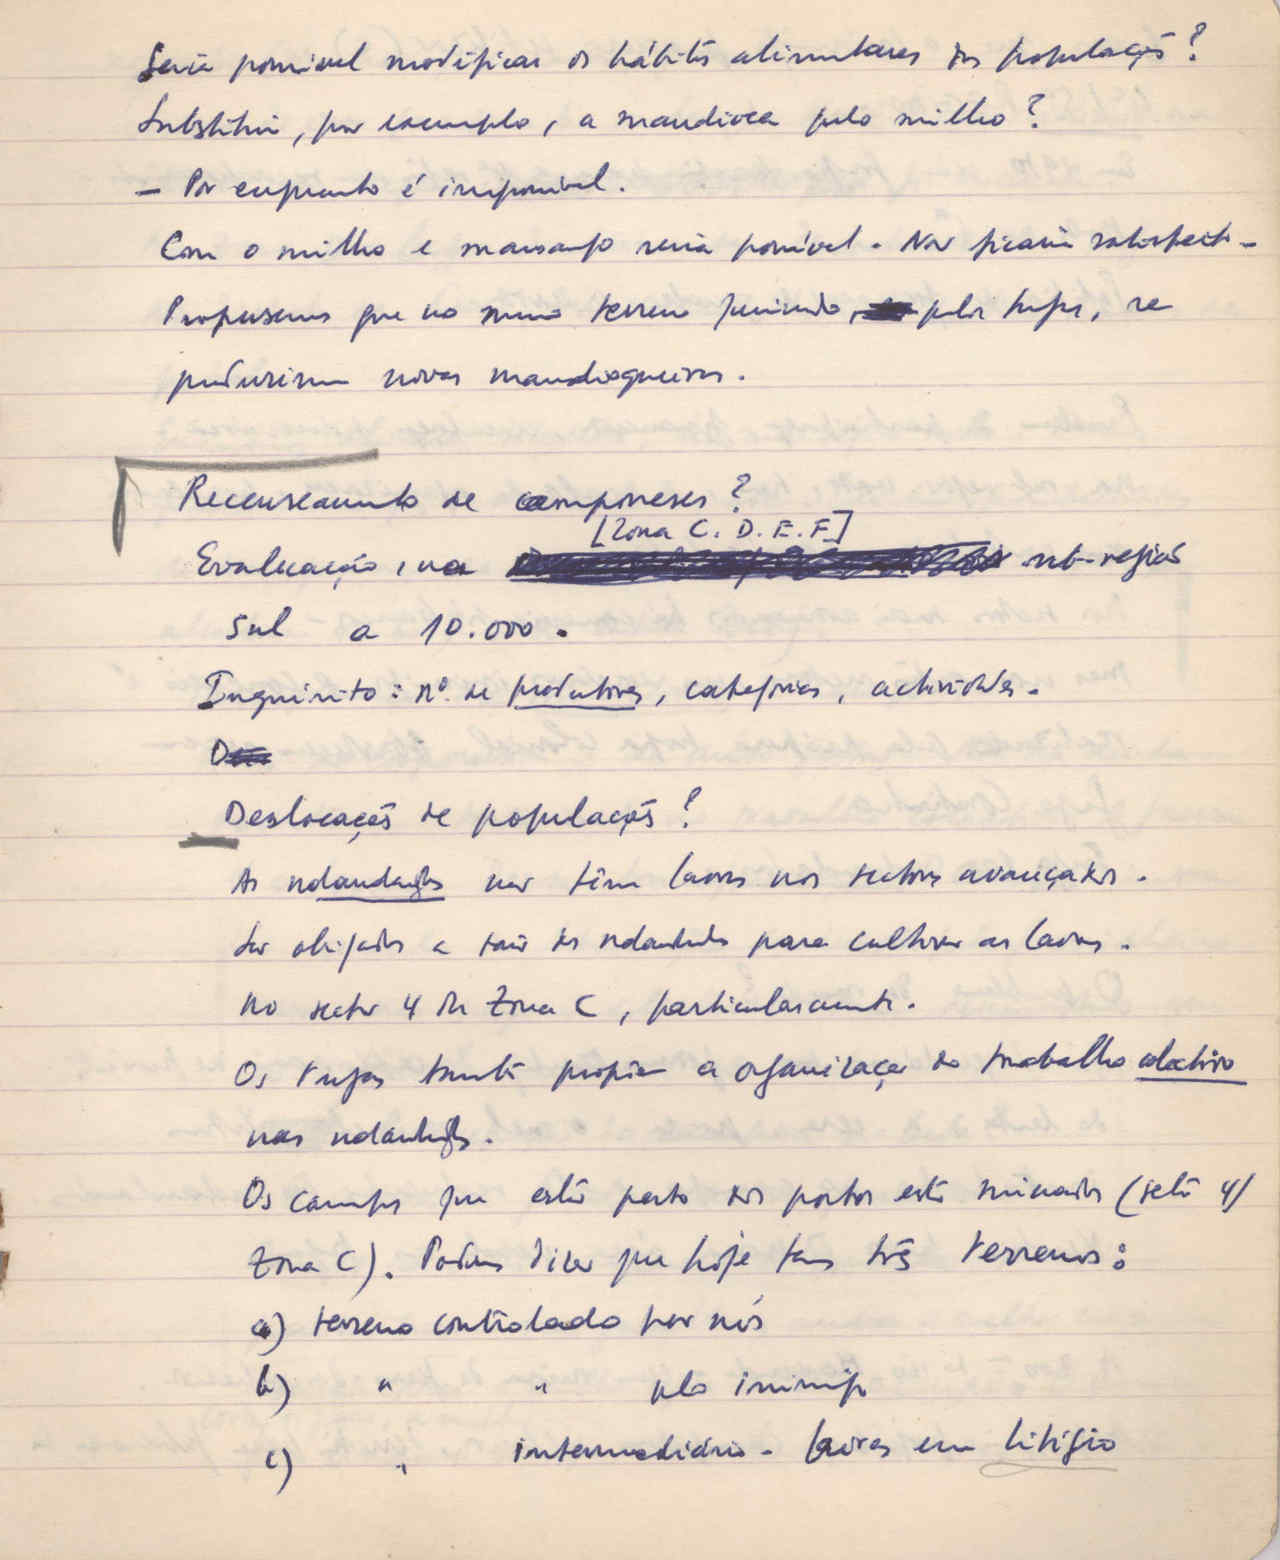 Seria possível modificar os hábitos alimentares das populações?
Substituir, por exemplo, a mandioca pelo milho?
– Por enquanto é impossível.
Com o milho e massango seria possível. Não ficaria satisfeito –
Propusemos que no mesmo terreno queimado pelos tugas, se
produzissem novas mandioqueiras.
Recenseamento de camponeses?
[Zona C. D. E. F]
Evaluação, na sub-região
Sul a 10.000.
Inquérito: nº. de produtores, categorias, actividades.
D
Deslocação de populações?
As ndandandas não têm lavras nos sectores avançados.
São obrigados a sair das para cultivar as lavras.
No sector 4 da Zona C, particularmente.
Os tugas a organização do trabalho colectivo
nas
Os campos que estão perto dos postos estão minados (sector 4/
Zona C). Podemos dizer que hoje temos três terrenos:
a) terreno controlado por nós
b) " " pelo inimigo
c) " intermediário – lavras em litígio